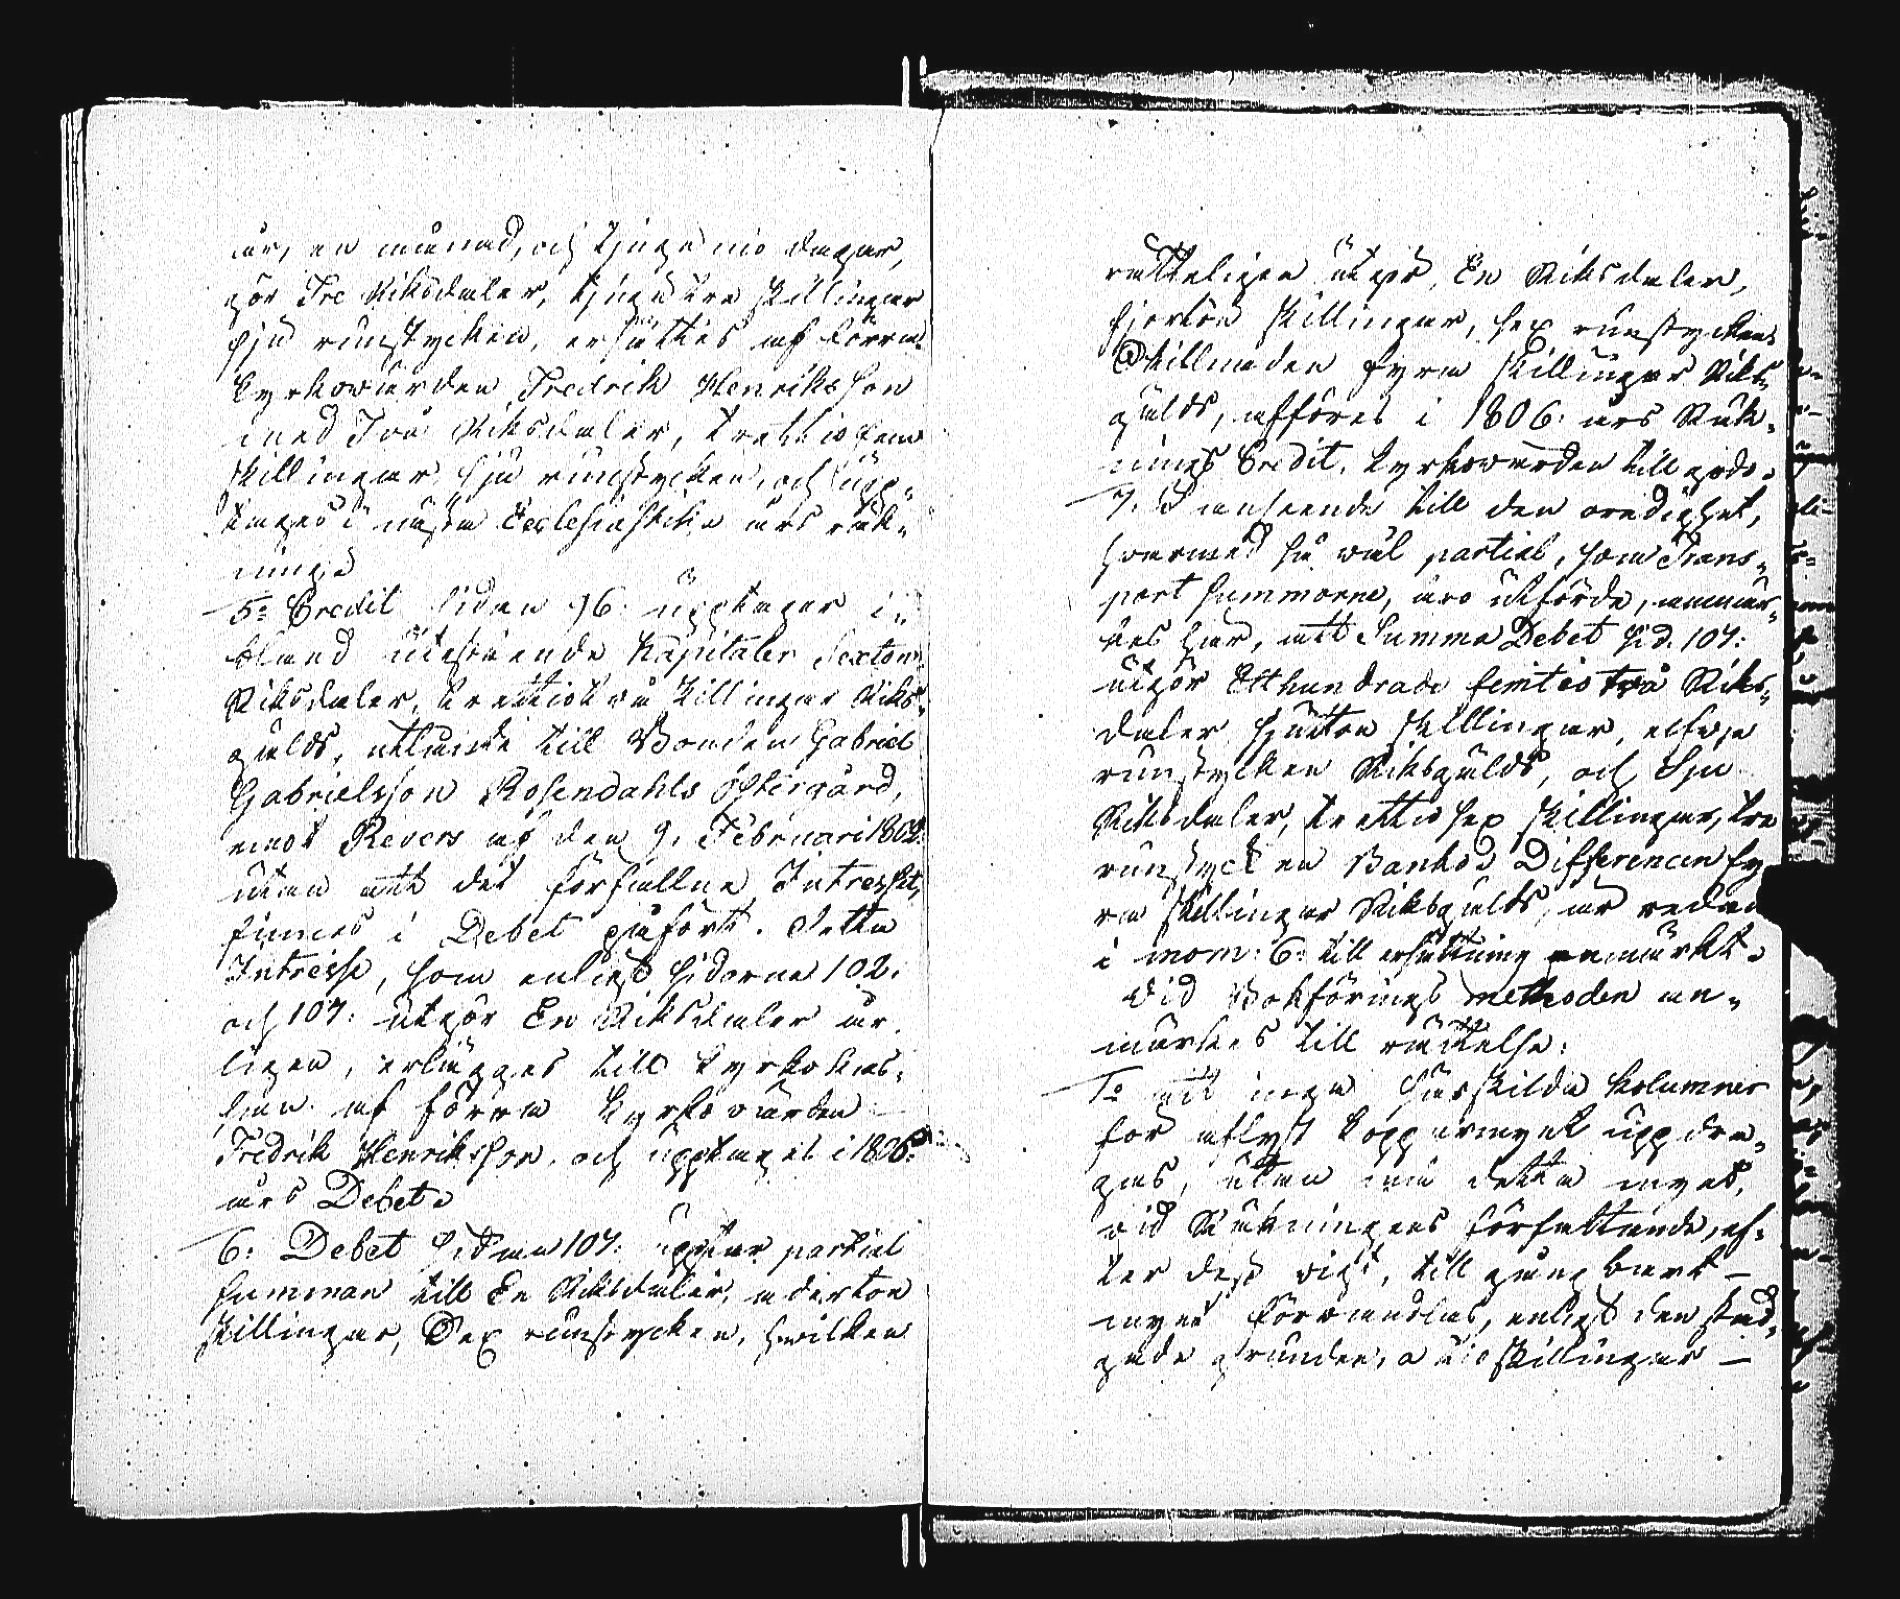 år, en månad, och tjuge nio dagar,
gör Tre Riksdaler, tjugu tre skillingar
sju runstycken, ersättes af förra
Kyrkowärden Fredrik Henriksson
med Två Riksdaler, trettio fem
skillingar sju runstycken, och upp-
tages i nästa Ecclesiastike års räk-
ning.
5o Credit sidan 96: upptager i-
bland utestående Kapitaler Sexton
Riksdaler, trettiotvå skillingar Riks-
gälds, utlånte till Bonden Gabriel
Gabrielsson Rosendahls Östergård,
emot Revers af den 9. Februari 1802.
utan att det förfallne Intresset,
finnes i Debet påfört. Detta
Intresse, som enligt sidorne 102.
och 107: utgör En Riksdaler år-
ligen, erlägges till Kyrkokas-
san af förra Kyrkowärden
Fredrik Henriksson, och upptages i 1806:
års Debet.
6: Debet Sidan 107: upptar partial
summan till En Riksdaler, aderton
skillingar, Sex runstycken, hwilken
rätteligen utgör, En Riksdaler,
fjorton skillingar, sex runstycken
Skillnaden fyra skillingar Riks-
gälds, afföres i 1806: års Räk-
nings Credit, Kyrkowärden till godo.
7. I anseende till den oredighet,
hwarmed så wäl partial, som Trans-
port summorne, äro utförde, anmär-
kes här, att Summa Debet sid. 107:
utgör Etthundrade femtio två Riks-
daler sjutton skillingar, elfwa
runstycken Riksgälds, och Sju
Riksdaler, trettio sex skillingar, tre
runstycken Banko. Differencen fy
ra skillingar Riksgälds, är redan
i mom: 6: till ersättning anmärkt.
Vid Bokförings methoden an-
märkes till rättelse:
1o att inga särskilda kolumner
för aflyst kopparmynt uppdra-
gas, utan må detta mynt,
vid Räkningens författande, ef-
ter dess vigt, till gångbart
mynt förwandlas, enligt den stad-
gade grunden, a tio skillingar